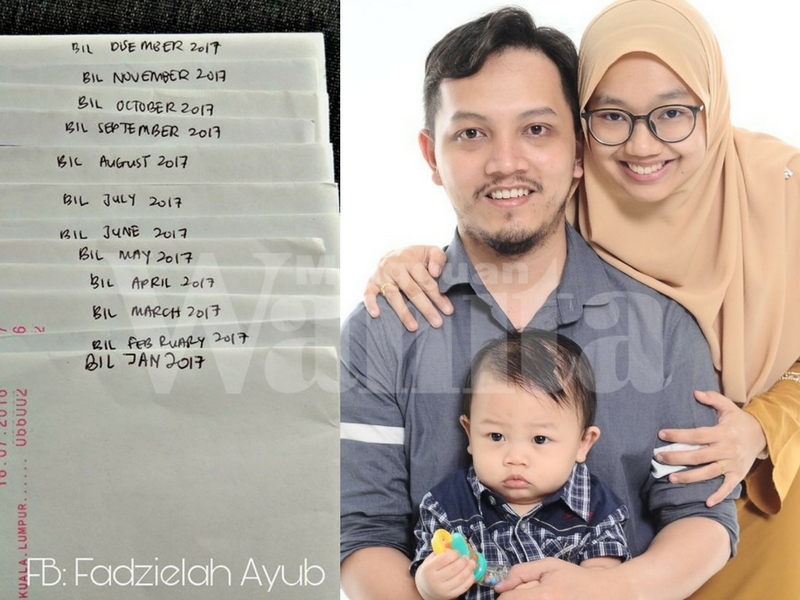 BIL DISEMBER 2017
BIL NOVEMBER 2017
BIL OCTOBER 2017
BIL SEPTEMBER 2017
BIL AUGUST 2017
BIL JULY 2017
BIL JUNE 2017
BIL MAY 2017
BIL APRIL 2017
BIL MARCH 2017
BIL FEBRUARY 2017
BIL JAN 2017
KUALA LUMPUR...... 066002
FB: Fadzielah Ayub
Mingguan
Wanita